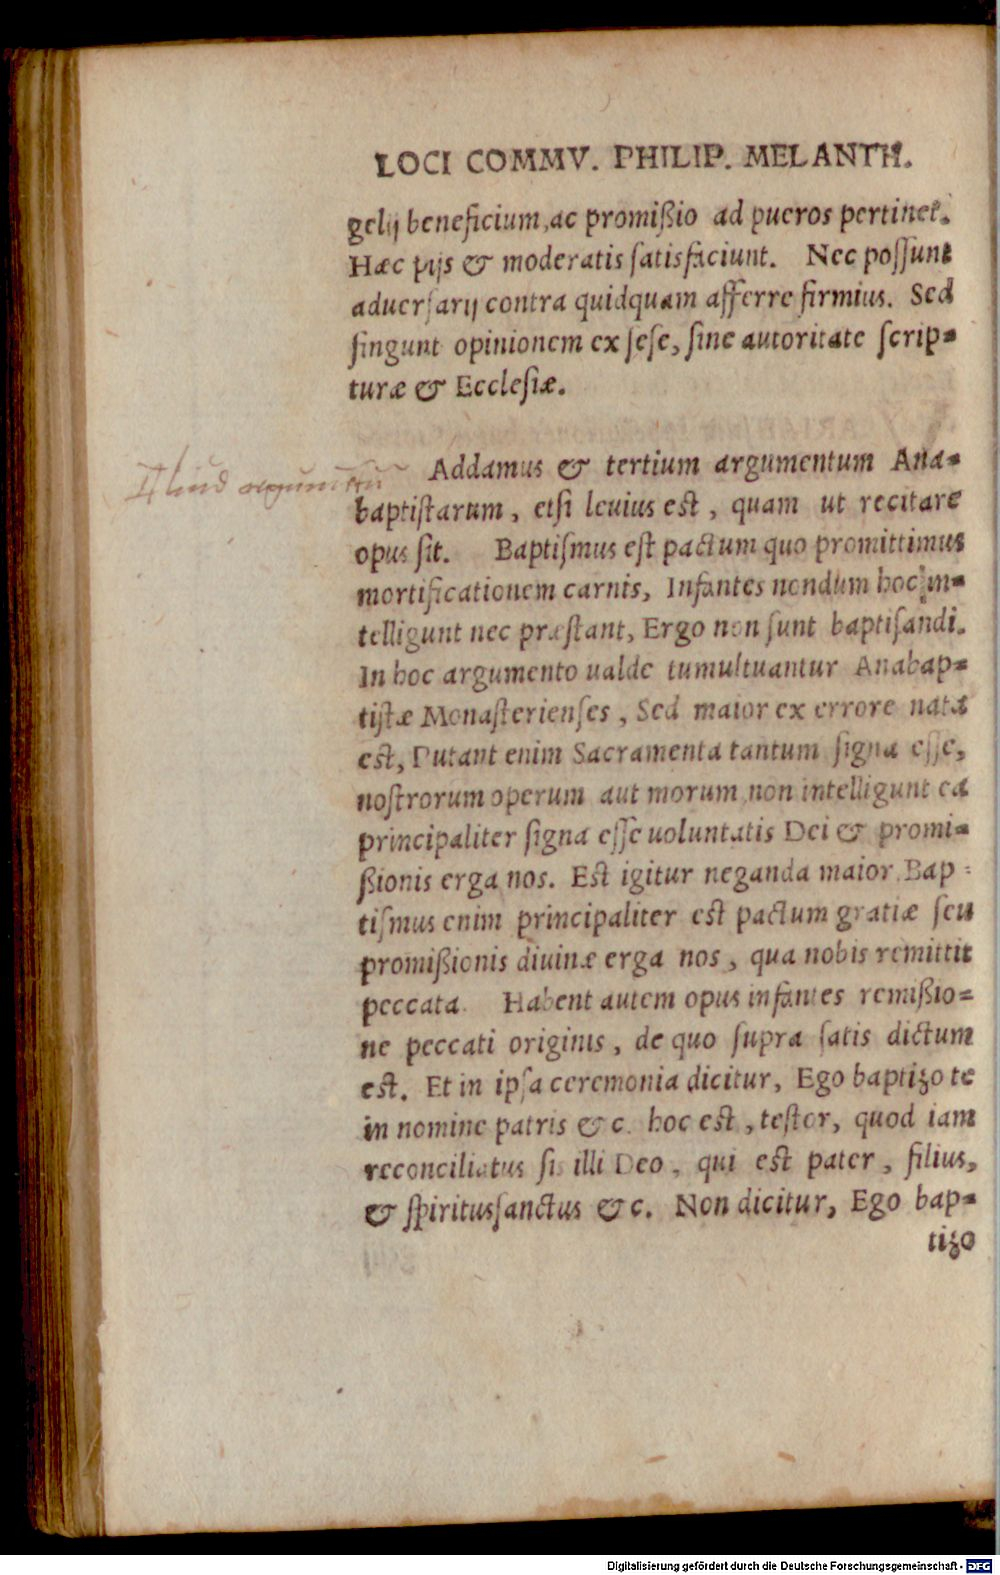 LOCI COMMV. PHILIP. MELANTH.
gelij beneficium, ac promißio ad pueros pertinet.
Hæc pijs & moderatis ſatisfaciunt. Nec poſſunt
aduerſarij contra quidquam afferre firmius. Sed
fingunt opinionem ex ſeſe, ſine autoritate ſcrip=
turæ & Eccleſiæ.
Addamus & tertium argumentum Ana=
baptiſtarum, etſi leuius eſt, quam ut recitare
opus ſit. Baptiſmus eſt pactum quo promittimus
mortificationem carnis, Infantes nondum hoc in=
telligunt nec præſtant, Ergo non ſunt baptiſandi.
In hoc argumento ualde tumultuantur Anabap=
tiſtæ Monaſterienſes, Sed maior ex errore nata
eſt, Putant enim Sacramenta tantum ſigna eſſe,
noſtrorum operum aut morum, non intelligunt ea
principaliter ſigna eſſe uoluntatis Dei & promi=
ßionis erga nos. Eſt igitur neganda maior. Bap=
tiſmus enim principaliter eſt pactum gratiæ ſeu
promißionis diuinæ erga nos, qua nobis remittit
peccata. Habent autem opus infantes remißio=
ne peccati originis, de quo ſupra ſatis dictum
eſt. Et in ipſa ceremonia dicitur, Ego baptizo te
in nomine patris &c. hoc eſt, teſtor, quod iam
reconciliatus ſis illi Deo, qui eſt pater, filius,
& ſpiritusſanctus &c. Non dicitur, Ego bap=
tizo
Digitalisierung gefördert durch die Deutsche Forschungsgemeinschaft - DFG